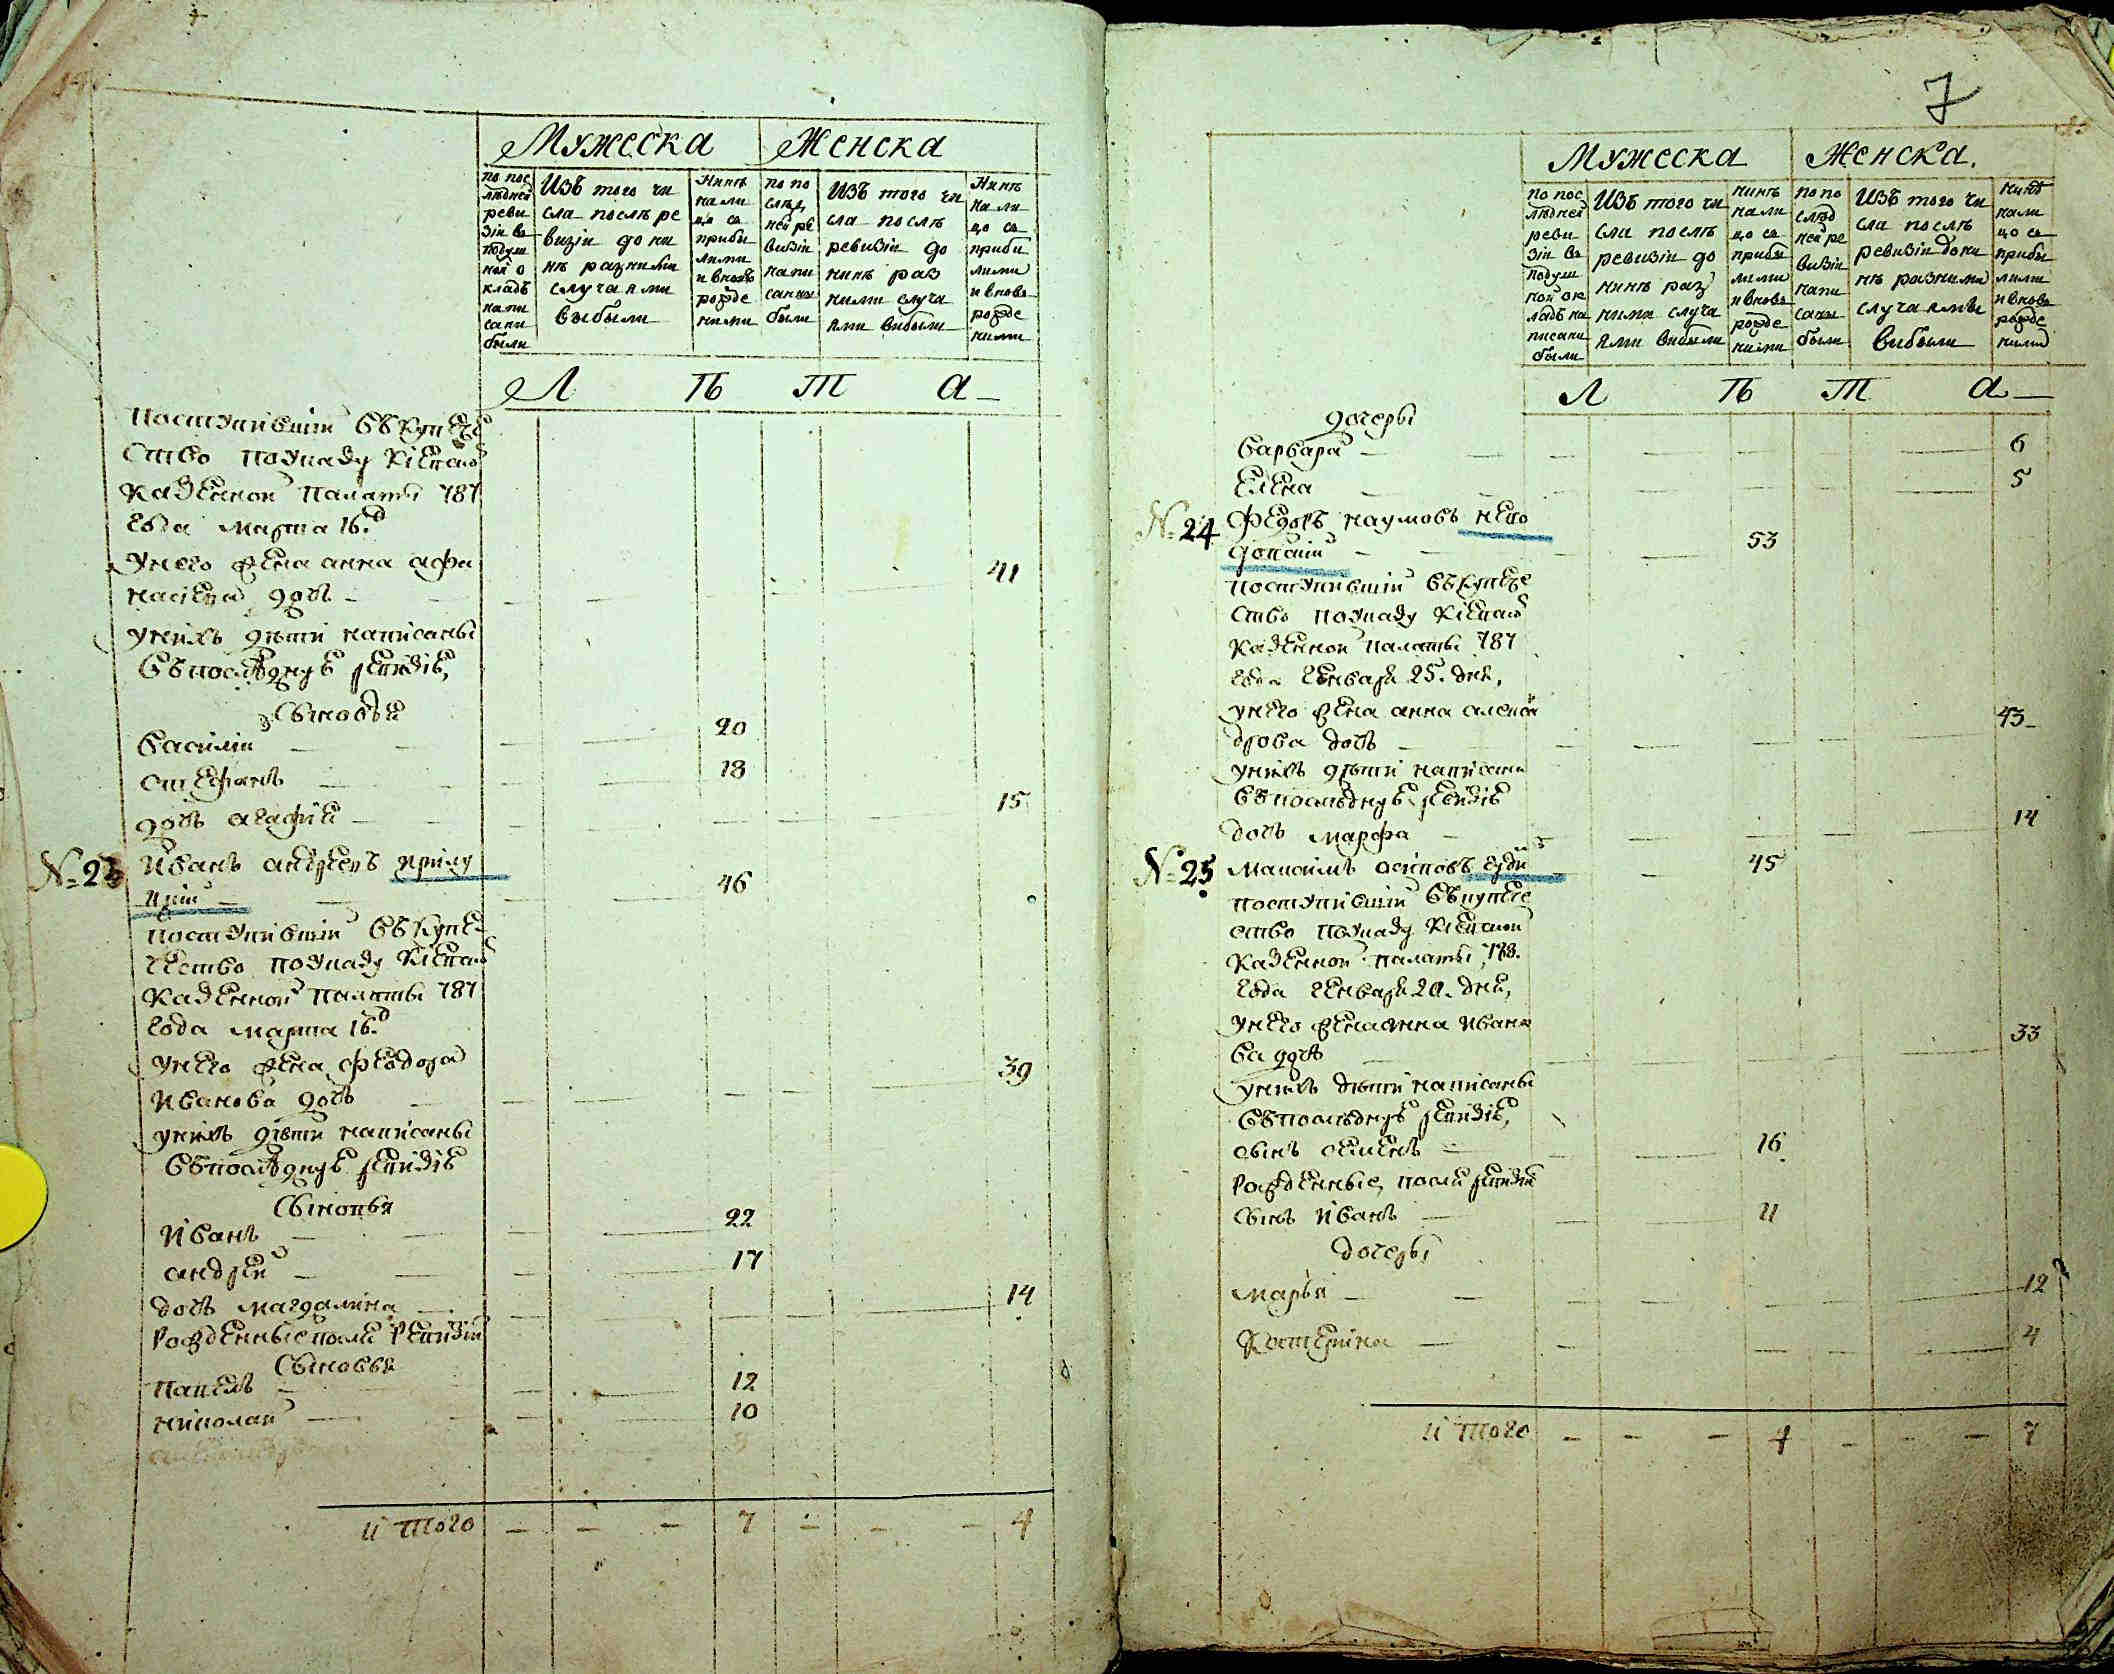 Мужеска Женска
по пос
лѣдней
реви
зіи въ
подуш
ной о
кладъ
напи
сани
были
Изъ того чи
сла послѣ ре
визіи до ни
нѣ разними
случаями
выбыли
Нинѣ
нали
цо съ
прибы
лими
и вновь
рожде
ними
по по
слѣд
ней ре
визіи
напи
саны
были
Изъ того чи
сла послѣ
ревизіи до
нинѣ раз
ними случа
ями вибыли
Нинѣ
нали
цо съ
приби
лими
и вновь
рожде
ними
Л Ѣ Т А
поступившій въ купече
ство по указу Кіевской
казенной палаты 787
года марта 16.
у него жена анна афа
насіева дочь 41
у нихъ дѣти написаны
въ последней ревизіе,
Сыновья
василій 20
стефанъ 18
дочь агафия 15
№ 23 Иванъ андреевъ прилу
цкій 46
поступившій въ купе
чество по указу Кіевской
казенной палаты 787
года марта 16.
у него жена феодора
Иванова дочь 39
у нихъ дѣти написаны
въ последней ревизіе
Сыновья
Иванъ 22
андрей 17
дочь магдалина 14
рожденные после ревизіи
Сыновья
павелъ 12
николай 10
и того 7 4
7
Мужеска Женска.
по пос
лѣдней
реви
зіи въ
подуш
ной ок
ладъ на
писани
были
Изъ того чи
сла послѣ
ревизіи до
нинѣ раз
ними случа
ями вибыли
нинѣ
нали
цо съ
прибы
лими
и вновь
рожде
ними
по по
слѣд
ней ре
визіи
напи
саны
были
Изъ того чи
сла послѣ
ревизіи до ни
нѣ разними
случаями
вибыли
нинѣ
нали
цо съ
прибы
лими
и вновь
рожде
ними
Л Ѣ Т А
дочеры
варвара 6
елена 5
№ 24 Федоръ наумовъ
53
поступившій въ купече
ство по указу Кіевской
казенной палаты 787
года генваря 25. дня,
у него жена анна алексан
дрова дочь 43
у нихъ дѣти написаны
въ последней ревизіе
дочь марфа 14
№ 25 максимъ осиповъ 45
поступившій въ купече
ство по указу Кіевской
казенной палаты 178.
года генваря 20. дня,
у него жена анна ивано
ва дочь 33
у нихъ дѣти написаны
въ последней ревизіе,
сынъ семенъ 16
рожденные после ревизіи
сынъ Иванъ 11
дочеры
марья 12
Катерина 4
и того 4 7